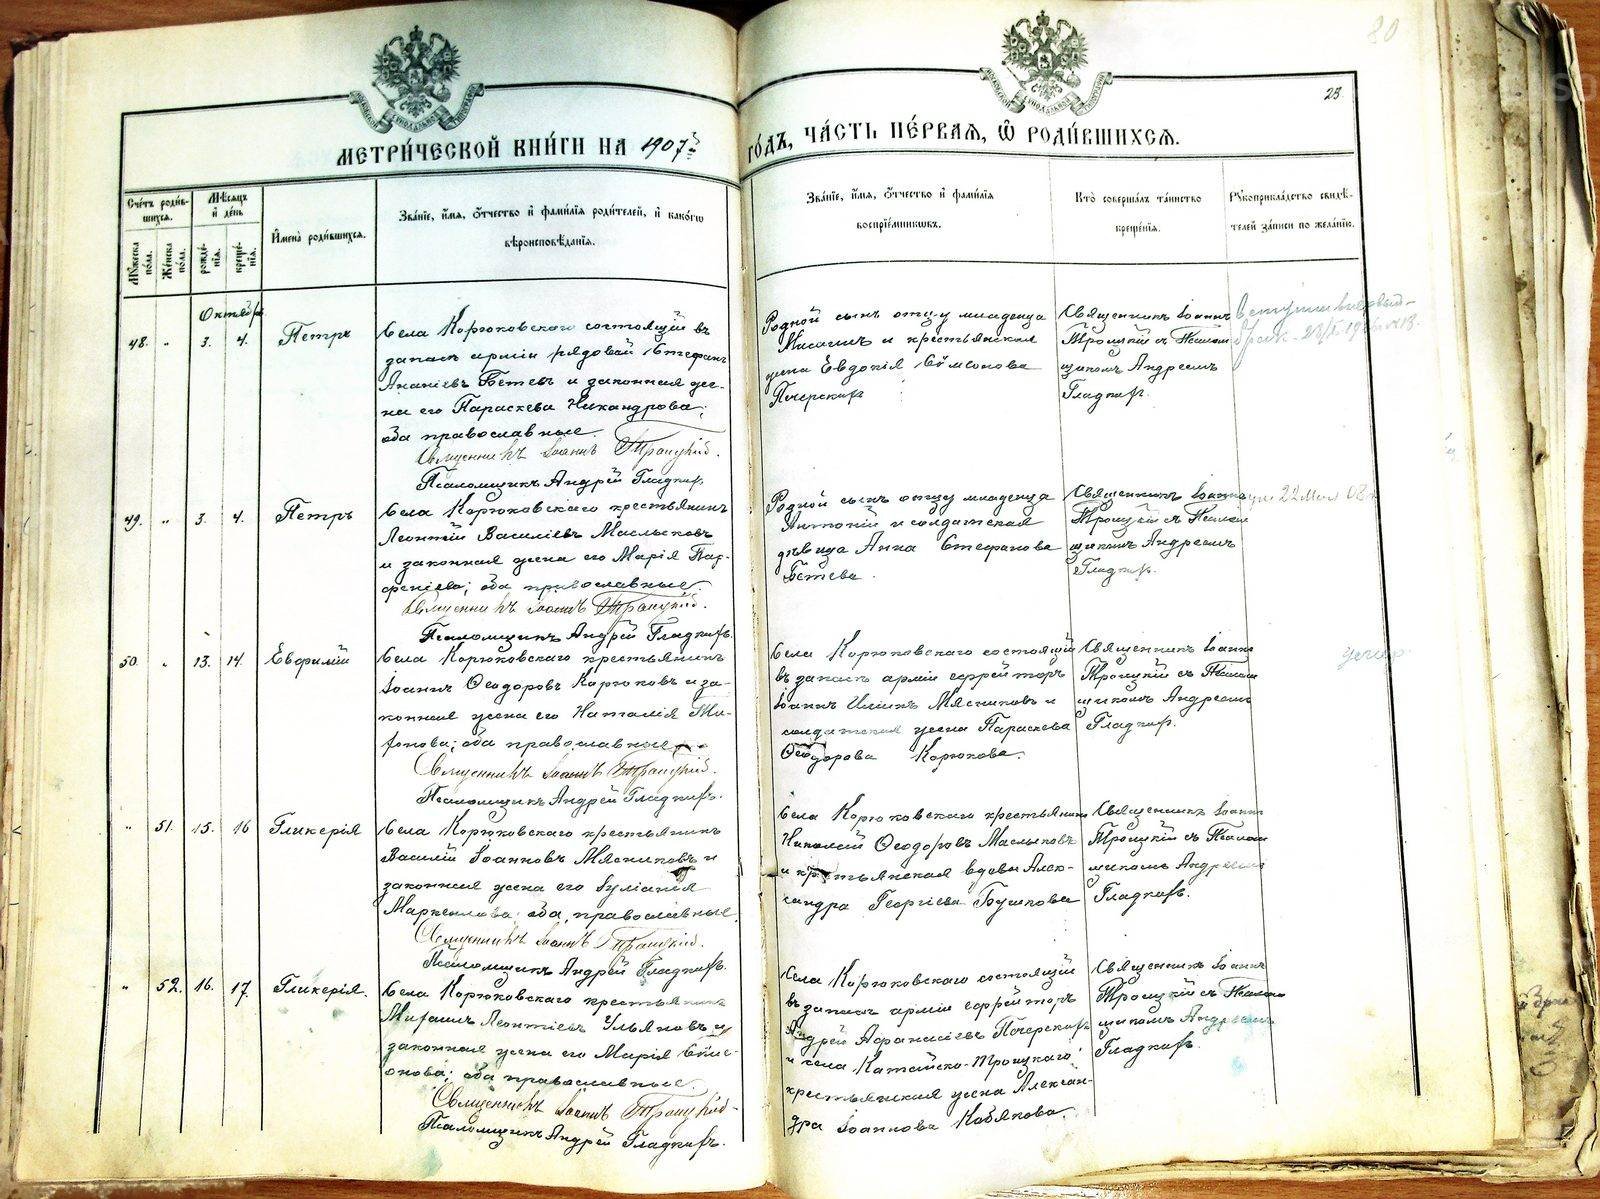 80
23
МЕТРИ́ЧЕСКОЙ КНИ́ГИ НА 1907й
ГО́ДЪ, ЧА́СТЬ ПЕ́РВАЯ, Ѿ РОДИ́ВШИХСЯ.
Сче́тъ роди́в-
шихся.
Му́жеска по́ла.
Же́нска по́ла.
Мѣ́сяцъ и҆ де́нь
рожде́-
нїѧ.
креще́-
нїѧ.
И҆мена̀ роди́вшихся.
Зва́нїе, и҆́мѧ, ѻ҆́тчество и҆ фами́лїѧ роди́телей, и҆ како́гѡ
вѣроисповѣ́данїѧ.
Зва́нїе, и҆́мѧ, ѻ҆́тчество и҆ фами́лїѧ
воспрїе́мниковъ.
Кто̀ соверша́лъ та́инство
креще́нїѧ.
Рꙋкоприкла́дство свидѣ́-
телей за́писи по жела́нїю.
Октябрь
48. " 3. 4. Петръ
Села Корюковскаго состоящій въ
запасѣ арміи рядовой Стефанъ
Ананіевъ Бетевъ и законная же-
на его Параскева Никандрова;
оба православные.
Священникъ Іоаннъ Троицкій.
Псаломщикъ Андрей Гладкихъ.
Родной сынъ отцу младенца
Мисаилъ и крестьянская
жена Евдокія Сѵмеонова
Печерскихъ
Священникъ Іоаннъ
Троицкій съ Псалом
щикомъ Андреемъ
Гладкихъ.
49. " 3. 4. Петръ
Села Корюковскаго крестьянинъ
Леонтій Василіевъ Маслыковъ
и законная жена его Марія Пар-
феніева; оба православные.
Священникъ Іоаннъ Троицкій.
Псаломщикъ Андрей Гладкихъ.
Родной сынъ отцу младенца
Антоній и солдатская
дѣвица Анна Стефанова
Бетева.
Священникъ Іоаннъ
Троицкій съ Псалом
щикомъ Андреемъ
Гладкихъ.
22 Мая 08
50. " 13. 14. Евфимій
Села Корюковскаго крестьянинъ
Іоаннъ Ѳеодоровъ Корюковъ и за-
конная жена его Наталія Ти-
фонова; оба православные
Священникъ Іоаннъ Троицкій.
Псаломщикъ Андрей Гладкихъ.
Села Корюковскаго состоящій
въ запасѣ арміи ефрейторъ
Іоаннъ Илиинъ Мясниковъ и
солдатская жена Параскева
Ѳеодорова Корюкова.
Священникъ Іоаннъ
Троицкій съ Псалом
щикомъ Андреемъ
Гладкихъ.
умеръ.
" 51. 15. 16 Гликерія
Села Корюковскаго крестьянинъ
Василій Іоанновъ Мясниковъ и
законная жена его Іуліанія
Маркеллова; оба православные.
Священникъ Іоаннъ Троицкій.
Псаломщикъ Андрей Гладкихъ.
Села Корюковскаго крестьянинъ
Николай Ѳеодоровъ Маслыковъ
и крестьянская вдова Алек-
сандра Георгіева Бушкова
Священникъ Іоаннъ
Троицкій съ Псалом
щикомъ Андреемъ
Гладкихъ.
" 52. 16. 17. Гликерія.
Села Корюковскаго крестьянинъ
Михаилъ Леонтіевъ Ульяновъ и
законная жена его Марія Сѵме-
онова; оба православные.
Священникъ Іоаннъ Троицкій.
Псаломщикъ Андрей Гладкихъ.
Села Корюковскаго состоящій
въ запасѣ арміи ефрейторъ
Андрей Афанасіевъ Печерскихъ
и села Катайско-Троицкаго
крестьянская жена Алексан-
дра Іоаннова Кобякова.
Священникъ Іоаннъ
Троицкій съ Псалом
щикомъ Андреемъ
Гладкихъ.